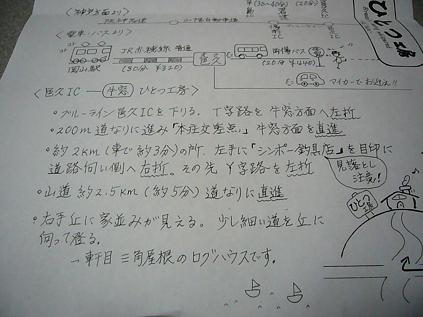 <電車・バスより>
岡山駅
JR赤穂線 普通
(30分 ¥320)
邑久
両備バス
(20分 ¥440)
マイカーでお迎え!!
<邑久IC — 牛窓 ひとつ工房>
・ブルーライン邑久ICを下りる。T字路を牛窓方面へ左折
・200m道なりに進み「本庄交差点」牛窓方面を直進
・約2km(車で約3分)の所、左手に「シンポー釣具店」を目印に
道路向い側へ右折。その先Y字路を左折
見落とし
注意!
・山道約2.5km(約5分)道なりに直進
・右手丘に家並みが見える。少し細い道を丘に
向って登る。
一軒目 三角屋根のログハウスです。